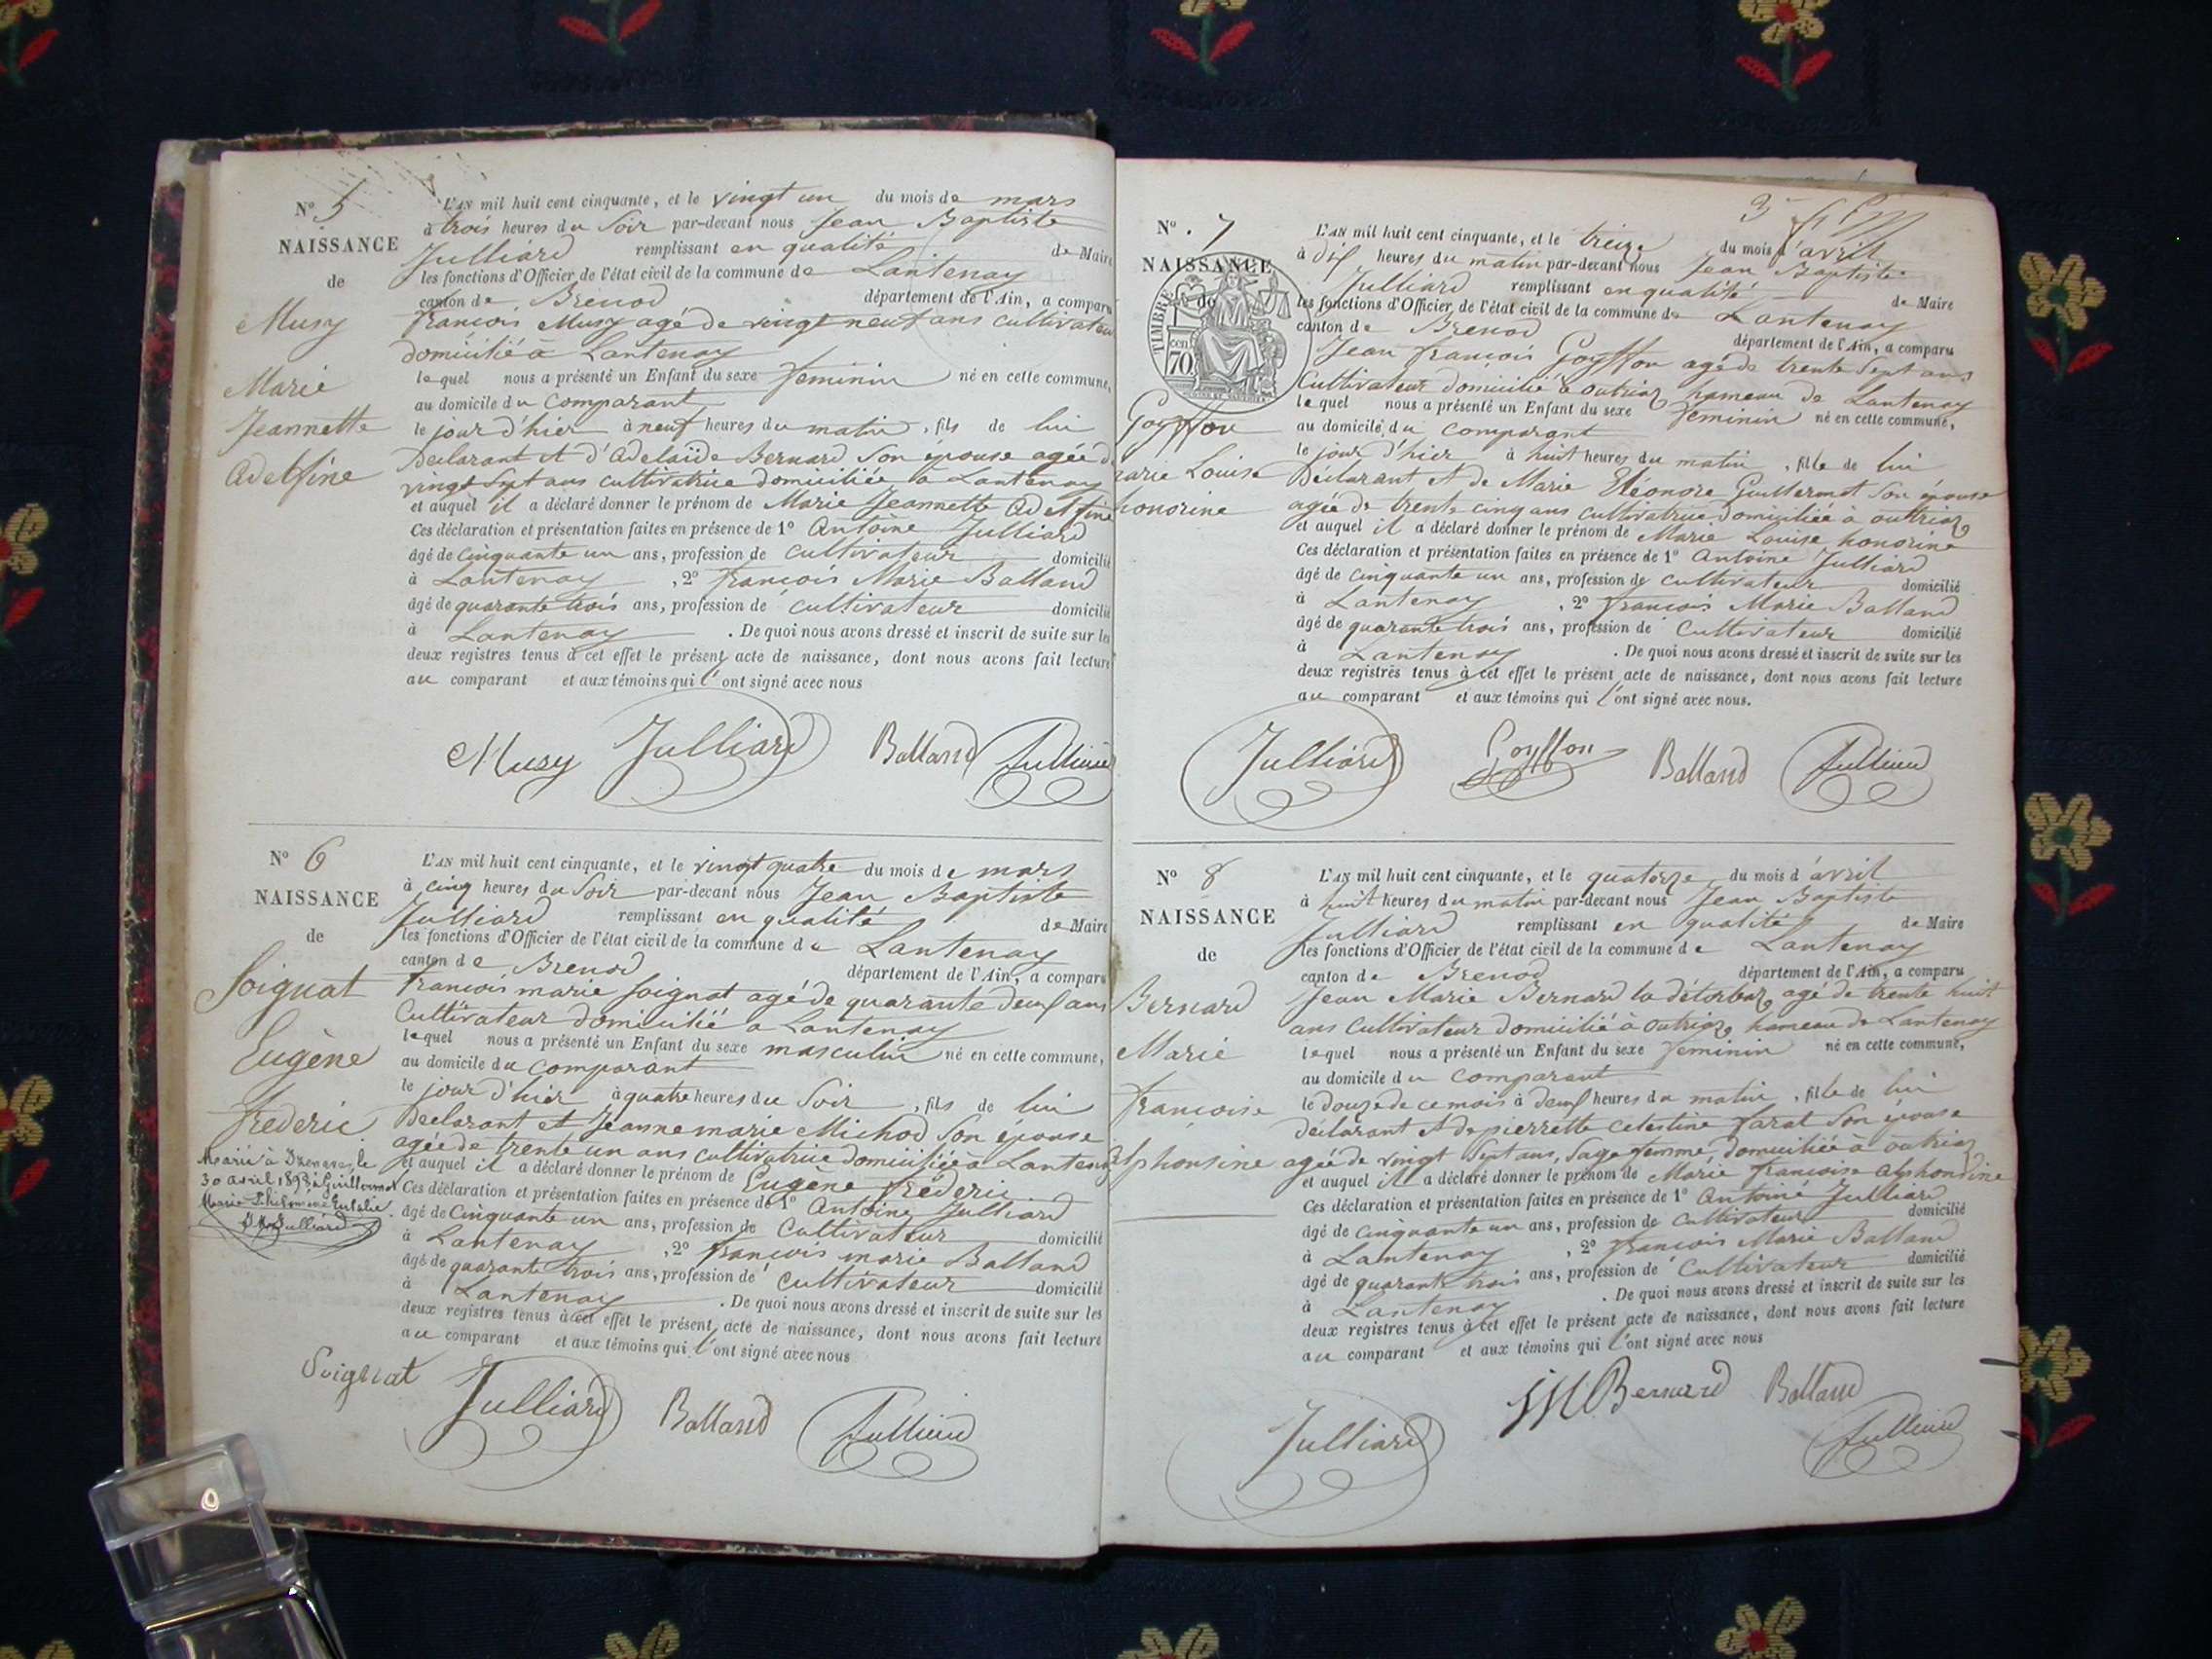 N° 5
NAISSANCE
de
Musy
Marie
Jeannette
Adelfine
L'AN mil huit cent cinquante, et le vingt un du mois de mars
à trois heures du Soir par-devant nous Jean Baptiste
Julliard remplissant en qualité de Maire
les fonctions d'Officier de l'état civil de la commune de Lantenay
canton de Brenod département de l'Ain, a comparu
françois Musy agé de vingt neuf ans cultivateur
domicilié à Lantenay
lequel nous a présenté un Enfant du sexe feminin né en cette commune,
au domicile du comparant
le jour d'hier à neuf heures du matin, fils de lui
Déclarant et d'Adelaïde Bernard Son épouse agée de
vingt Sept ans cultivatrice domiciliée à Lantenay
et auquel il a déclaré donner le prénom de Marie Jeannette Adelfine
Ces déclaration et présentation faites en présence de 1° Antoine Julliard
âgé de cinquante un ans, profession de cultivateur domicilié
à Lantenay, 2° françois Marie Balland
âgé de quarante trois ans, profession de cultivateur domicilié
à Lantenay. De quoi nous avons dressé et inscrit de suite sur les
deux registres tenus à cet effet le présent acte de naissance, dont nous avons fait lecture
au comparant et aux témoins qui l'ont signé avec nous
Musy Julliard Balland Julliard
N° 6
NAISSANCE
de
Soignat
Eugène
frederic
Marié à Izenave, le
30 avril 1893 à Guillermet
Marie Philomène Eulalie.
Julliard
L'AN mil huit cent cinquante, et le vingt quatre du mois de mars
à cinq heures du Soir par-devant nous Jean Baptiste
Julliard remplissant en qualité de Maire
les fonctions d'Officier de l'état civil de la commune de Lantenay
canton de Brenod département de l'Ain, a comparu
françois marie Soignat agé de quarante deux ans
Cultivateur domicilié a Lantenay
lequel nous a présenté un Enfant du sexe masculin né en cette commune,
au domicile du comparant
le jour d'hier à quatre heures du Soir, fils de lui
Déclarant et Jeanne marie Michod Son épouse
agée de trente un ans cultivatrice domiciliée à Lantenay
et auquel il a déclaré donner le prénom de Eugène fréderic
Ces déclaration et présentation faites en présence de 1° Antoine Julliard
âgé de Cinquante un ans, profession de Cultivateur domicilié
à Lantenay, 2° françois marie Balland
âgé de quarante trois ans, profession de cultivateur domicilié
à Lantenay. De quoi nous avons dressé et inscrit de suite sur les
deux registres tenus à cet effet le présent acte de naissance, dont nous avons fait lecture
au comparant et aux témoins qui l'ont signé avec nous
Soignat Julliard Balland Julliard
3
N° 7
NAISSANCE
de
TIMBRE
70 cen
Goyffon
marie Louise
honorine
L'AN mil huit cent cinquante, et le treize du mois d'avril
à dix heures du matin par-devant nous Jean Baptiste
Julliard remplissant en qualité de Maire
les fonctions d'Officier de l'état civil de la commune de Lantenay
canton de Brenod département de l'Ain, a comparu
Jean françois Goyffon agé de trente Sept ans
Cultivateur domicilié à outriaz hameau de Lantenay
lequel nous a présenté un Enfant du sexe feminin né en cette commune,
au domicile du comparant
le jour d'hier à huit heures du matin, fille de lui
Déclarant et de Marie Eléonore Guillermet Son épouse
agée de trente cinq ans cultivatrice domiciliée à outriaz
et auquel il a déclaré donner le prénom de Marie Louise honorine
Ces déclaration et présentation faites en présence de 1° Antoine Julliard
âgé de cinquante un ans, profession de cultivateur domicilié
à Lantenay, 2° françois Marie Balland
âgé de quarante trois ans, profession de Cultivateur domicilié
à Lantenay. De quoi nous avons dressé et inscrit de suite sur les
deux registres tenus à cet effet le présent acte de naissance, dont nous avons fait lecture
au comparant et aux témoins qui l'ont signé avec nous.
Julliard Goyffon Balland Julliard
N° 8
NAISSANCE
de
Bernard
Marie
françoise
alphonsine
L'AN mil huit cent cinquante, et le quatorze du mois d'avril
à huit heures du matin par-devant nous Jean Baptiste
Julliard remplissant en qualité de Maire
les fonctions d'Officier de l'état civil de la commune de Lantenay
canton de Brenod département de l'Ain, a comparu
Jean Marie Bernard agé de trente huit
ans cultivateur domicilié à outriaz hameau de Lantenay
lequel nous a présenté un Enfant du sexe feminin né en cette commune,
au domicile du comparant
le douze de ce mois à deux heures du matin, fille de lui
déclarant et de pierrette celestine farat Son épouse
agée de vingt Sept ans, Sage femme, domiciliée à outriaz
et auquel il a déclaré donner le prénom de Marie françoise alphonsine
Ces déclaration et présentation faites en présence de 1° Antoine Julliard
âgé de cinquante un ans, profession de cultivateur domicilié
à Lantenay, 2° françois Marie Balland
âgé de quarante trois ans, profession de Cultivateur domicilié
à Lantenay. De quoi nous avons dressé et inscrit de suite sur les
deux registres tenus à cet effet le présent acte de naissance, dont nous avons fait lecture
au comparant et aux témoins qui l'ont signé avec nous
Julliard JM Bernard Balland Julliard